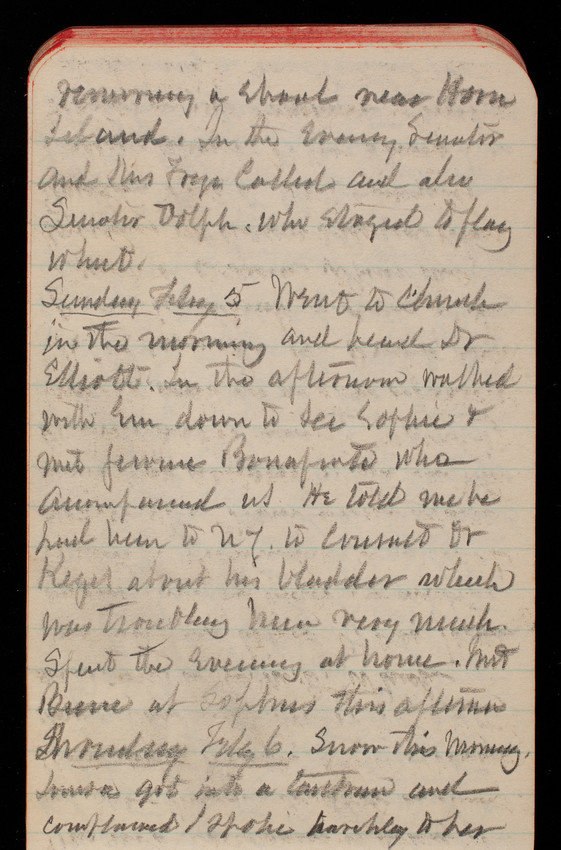 removing a shoal near Horn
Island. In the Evening Senator
and Mrs Frye Called and also
Senator Dolph. who stayed to play
whist.
Sunday Feby 5 Went to Church
in the morning and heard Dr
Elliott. In the afternoon walked
with Em down to see Sophie &
met Jerome Bonaparte who
accompanied us He told me he
had been to N.Y. to consult Dr
Keyes about his bladder which
was troubling him very much.
Spent the Evening at home. Met
at Sophies this afternoon
Feby 6. Snow this morning.
Louisa got into a tantrum and
complained I spoke harshly to her